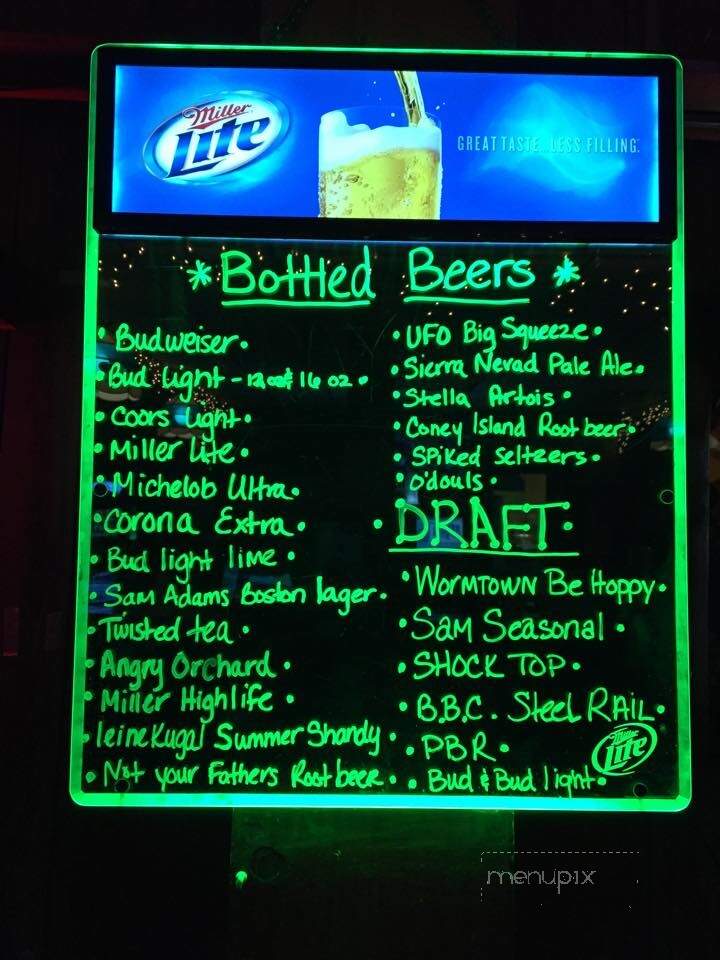 Miller
Lite
GREAT TASTE. LESS FILLING.
* Bottled Beers *
• Budweiser •
• Bud Light - 12 oz & 16 oz •
• Coors Light •
• Miller Lite •
• Michelob Ultra •
• Corona Extra •
• Bud light lime •
• Sam Adams Boston lager •
• Twisted tea •
• Angry Orchard •
• Miller Highlife •
• leineKugal Summer Shandy •
• Not your Fathers Root beer •
• UFO Big Squeeze •
• Sierra Nevad Pale Ale •
• Stella Artois •
• Coney Island Root beer •
• SPiKed Seltzers •
• O'douls •
• DRAFT •
• WORMTOWN Be Hoppy •
• Sam Seasonal •
• SHOCK TOP •
• B.B.C. Steel RAIL •
• PBR •
• Bud & Bud light •
Miller
Lite
menupix